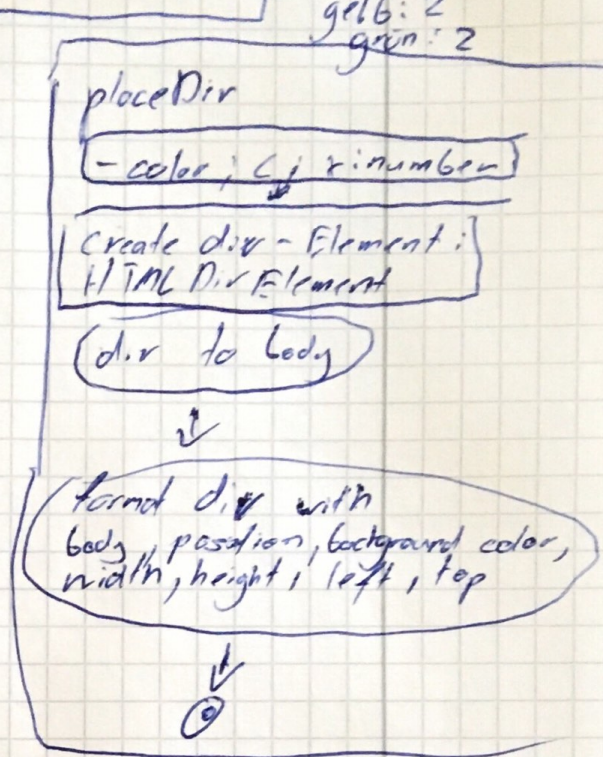 gelb: 2
grün: 2
placeDiv
- color, c, r: number
Create div-Element:
HTML Div Element
div to body
format div with
body, position, background color,
width, height, left, top